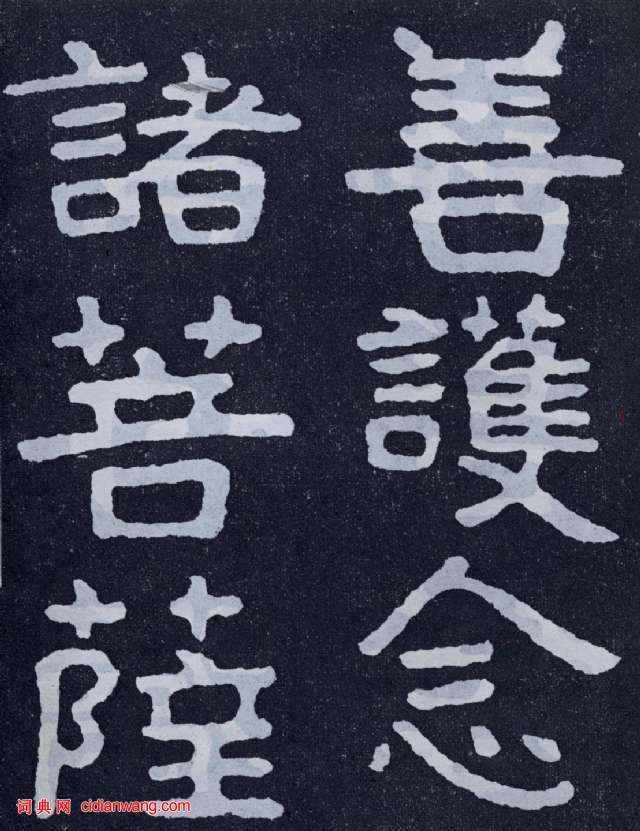 善護念
諸菩薩
词典网 cidianwang.com